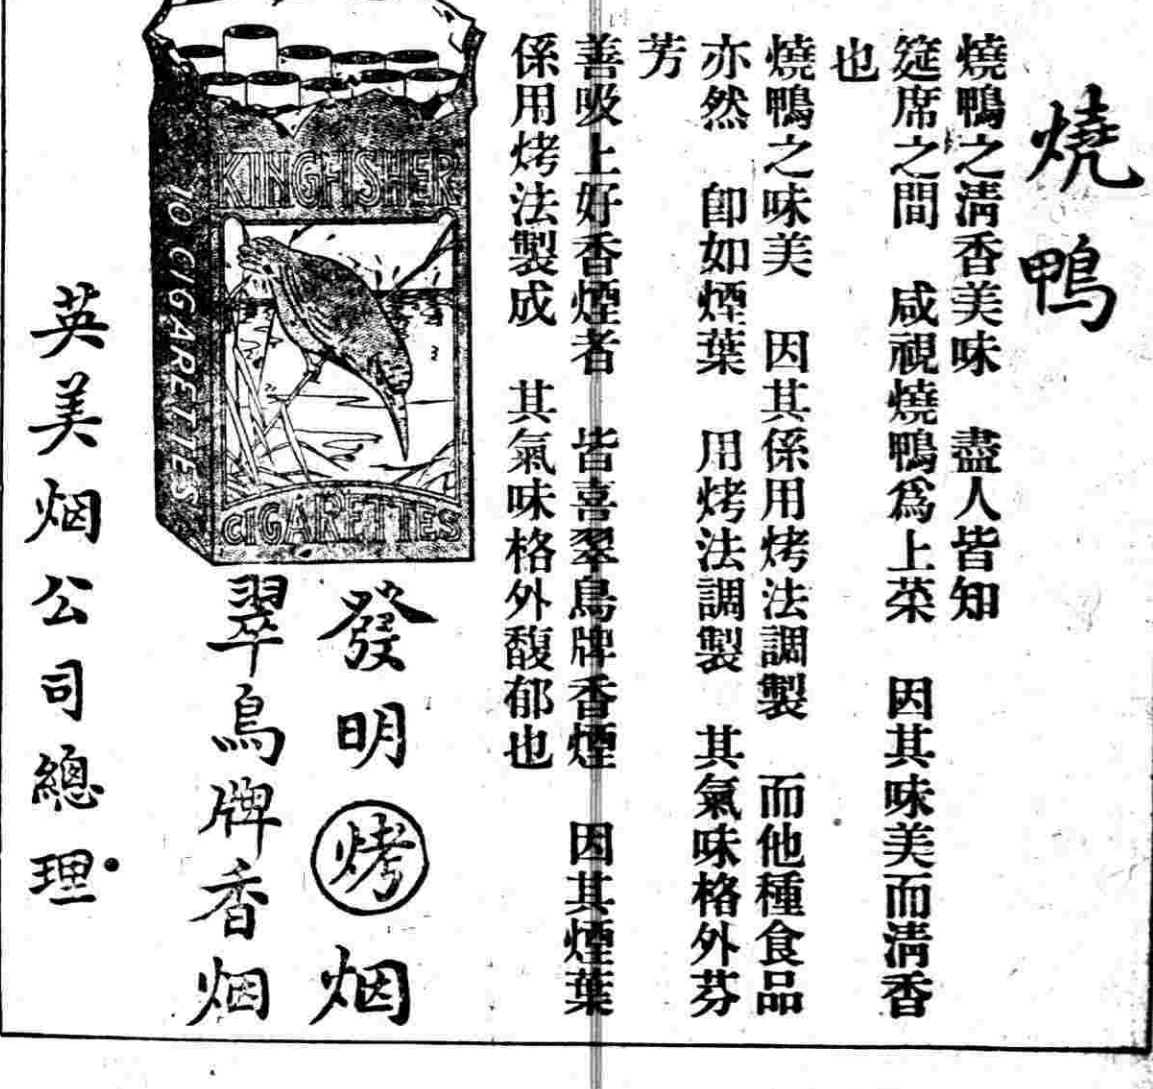 燒鴨
燒鴨之淸香美味　盡人皆知
筵席之間　咸視燒鴨爲上菜　因其味美而淸香
也
燒鴨之味美　因其係用烤法調製　而他種食品
亦然　卽如煙葉　用烤法調製　其氣味格外芬
芳
善吸上好香煙者　皆喜翠鳥牌香煙　因其煙葉
係用烤法製成　其氣味格外馥郁也
KINGFISHER
10 CIGARETTES
CIGARETTES
發明烤烟
翠鳥牌香烟
英美烟公司總理